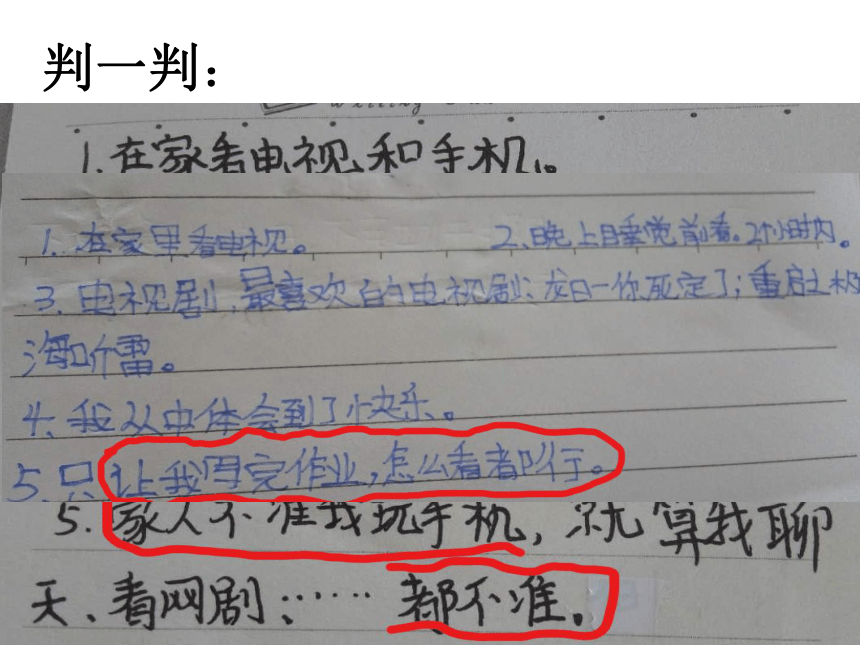 判一判：
1.在家看电视和手机。
1.在家里看电视。 2.晚上睡觉前看。2小时内。
3.电视剧,最喜欢的电视剧:龙日一你死定了;重启之极
海听雷。
4.我从中体会到了快乐。
5.只让我写完作业,怎么看都行。
5.家人不准我玩手机,就算我聊
天、看网剧:…… 都不准。